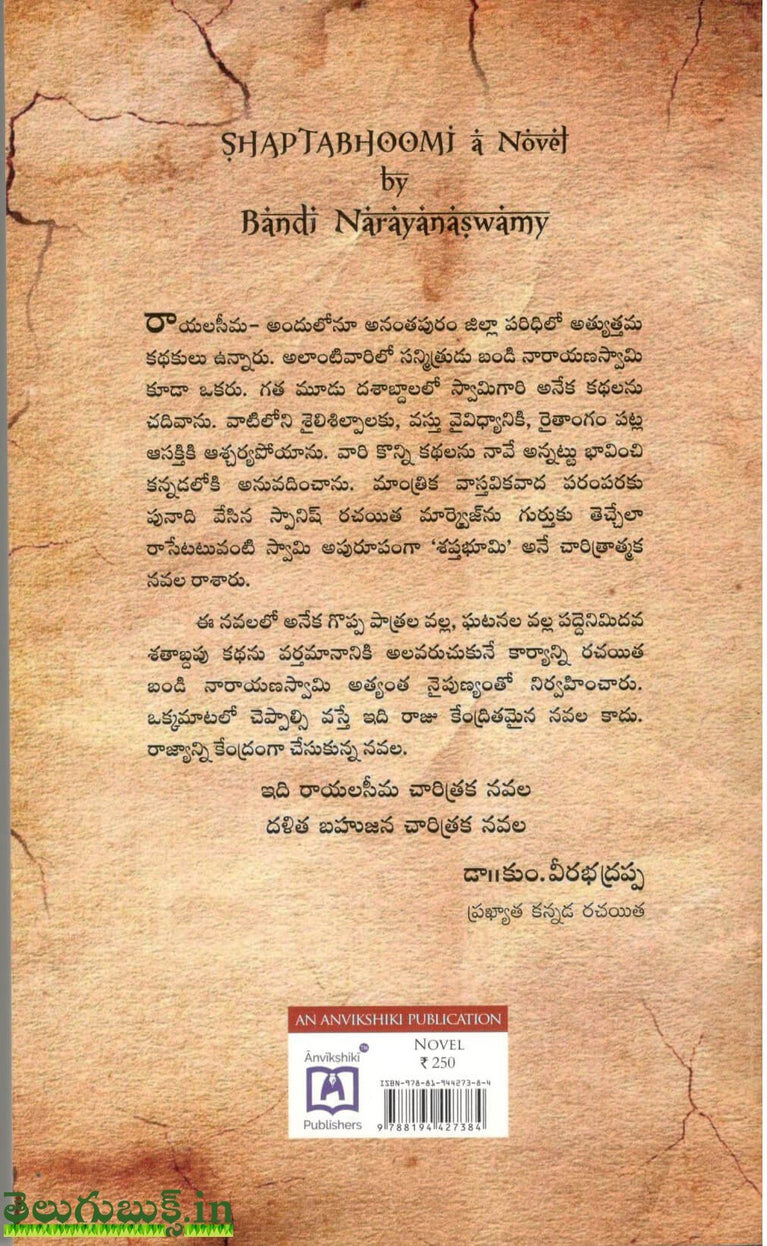 SHAPTABHOOMI a Novel
by
Bandi Narayanaswamy
రాయలసీమ- అందులోనూ అనంతపురం జిల్లా పరిధిలో అత్యుత్తమ
కథకులు ఉన్నారు. అలాంటివారిలో సన్మిత్రుడు బండి నారాయణస్వామి
కూడా ఒకరు. గత మూడు దశాబ్దాలలో స్వామిగారి అనేక కథలను
చదివాను. వాటిలోని శైలిశిల్పాలకు, వస్తు వైవిధ్యానికి, రైతాంగం పట్ల
ఆసక్తికి ఆశ్చర్యపోయాను. వారి కొన్ని కథలను నావే అన్నట్టు భావించి
కన్నడలోకి అనువదించాను. మాంత్రిక వాస్తవికవాద పరంపరకు
పునాది వేసిన స్పానిష్ రచయిత మార్క్వెజ్‌ను గుర్తుకు తెచ్చేలా
రాసేటటువంటి స్వామి అపురూపంగా ‘శప్తభూమి’ అనే చారిత్రాత్మక
నవల రాశారు.
ఈ నవలలో అనేక గొప్ప పాత్రల వల్ల, ఘటనల వల్ల పద్దెనిమిదవ
శతాబ్దపు కథను వర్తమానానికి అలవరుచుకునే కార్యాన్ని రచయిత
బండి నారాయణస్వామి అత్యంత నైపుణ్యంతో నిర్వహించారు.
ఒక్కమాటలో చెప్పాల్సి వస్తే ఇది రాజు కేంద్రితమైన నవల కాదు.
రాజ్యాన్ని కేంద్రంగా చేసుకున్న నవల.
ఇది రాయలసీమ చారిత్రక నవల
దళిత బహుజన చారిత్రక నవల
డా॥కుం.వీరభద్రప్ప
ప్రఖ్యాత కన్నడ రచయిత
AN ANVIKSHIKI PUBLICATION
Ānvīkshikī TM
Publishers
NOVEL
₹ 250
ISBN-978-81-944273-8-4
9 788194 427384
తెలుగుబుక్స్.in